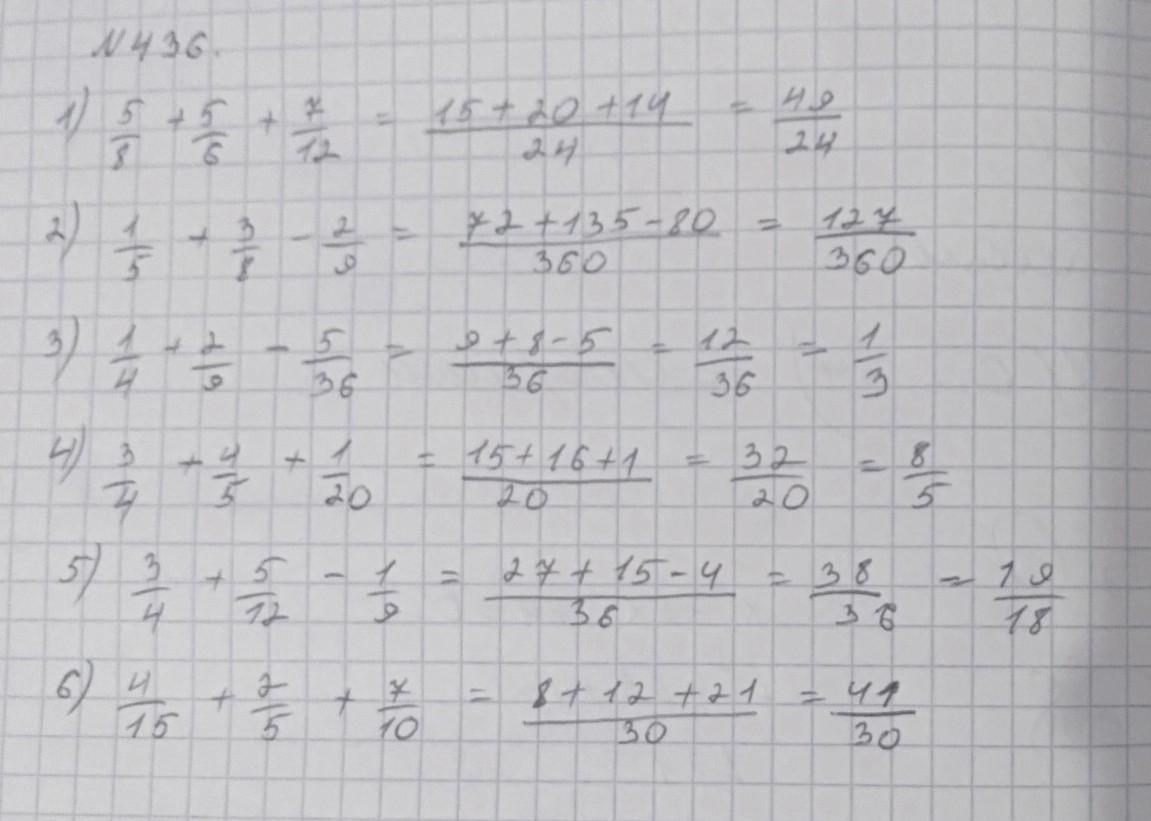 N436.
1) 5/8 + 5/6 + 7/12 = (15+20+14)/24 = 49/24
2) 1/5 + 3/8 - 2/9 = (72+135-80)/360 = 127/360
3) 1/4 + 2/9 - 5/36 = (9+8-5)/36 = 12/36 = 1/3
4) 3/4 + 4/5 + 1/20 = (15+16+1)/20 = 32/20 = 8/5
5) 3/4 + 5/12 - 1/9 = (27+15-4)/36 = 38/36 = 19/18
6) 4/15 + 2/5 + 7/10 = (8+12+21)/30 = 41/30